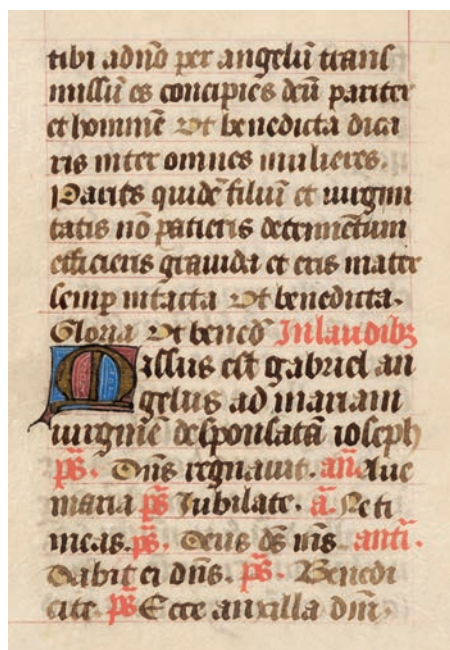 tibi adnō per angelū trans
missū es concipies deū pariter
et hominē Ut benedicta dica
ris inter omnes mulieres.
Pariēs quidē filiū et uirgini
tatis nō patieris detrimētum
efficieris grauida et eris mater
semp intacta Ut benedicta.
Gloria Ut bened̄ In laudibꝫ
Missus est gabriel an
gelus ad mariam
uirginē desponsatā ioseph
p̄s. Dn̄s regnauit. an̄ Aue
maria p̄s Iubilate. a᷎. Ne ti
meas. p̄s. Deus ds̄ n̄s. anti.
Dabit ei dn̄s. p̄s. Benedi
cite p̄s Ecce ancilla dn̄i.